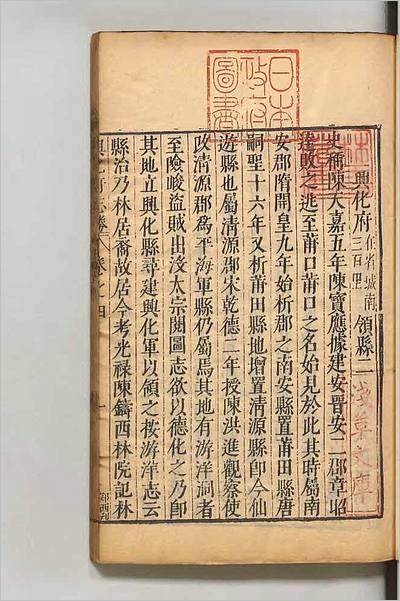 日本
政府
圖書
興化府 在省城南三百里 領縣二
史稱陳天嘉五年陳寶應據建安晉安二郡章昭
達敗之逃至莆口莆口之名始見於此其時屬南
安郡隋開皇九年始析郡之南安縣置莆田縣唐
嗣聖十六年又析莆田縣地增置清源縣卽今仙
遊縣也屬清源郡宋乾德二年授陳洪進觀察使
改清源郡爲平海軍縣仍屬焉其地有游洋洞者
至險峻盜賊出沒太宗閱圖志欲以德化之乃卽
其地立興化縣尋建興化軍以領之按游洋志云
縣治乃林居裔故居今考光祿陳鑄西林院記林
淺草文庫